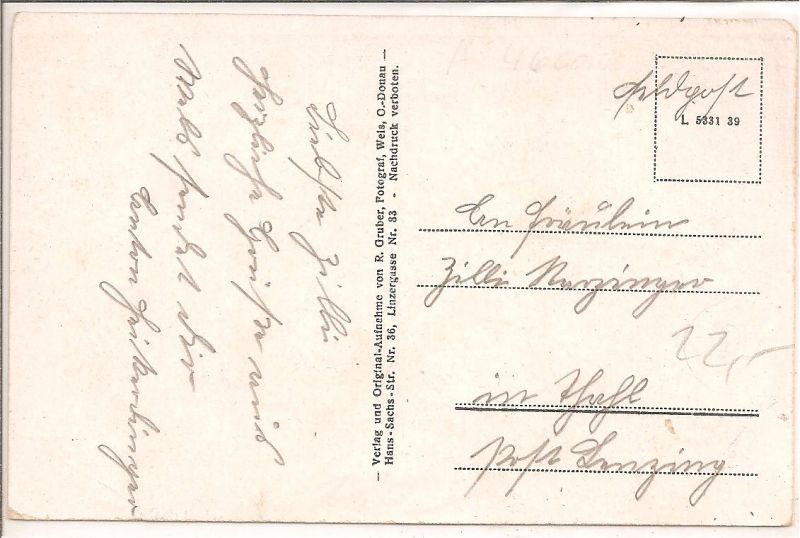 Liebste Zilli
Herzliche Grüße und
sendet dir
Anton
— Verlag und Original-Aufnahme von R. Gruber, Fotograf, Wels, O.-Donau —
Hans-Sachs-Str. Nr. 36, Linzergasse Nr. 33 - Nachdruck verboten.
Feldpost
L 5331 39
An Fräulein
Zilli
22,-
in
Post Lenzing